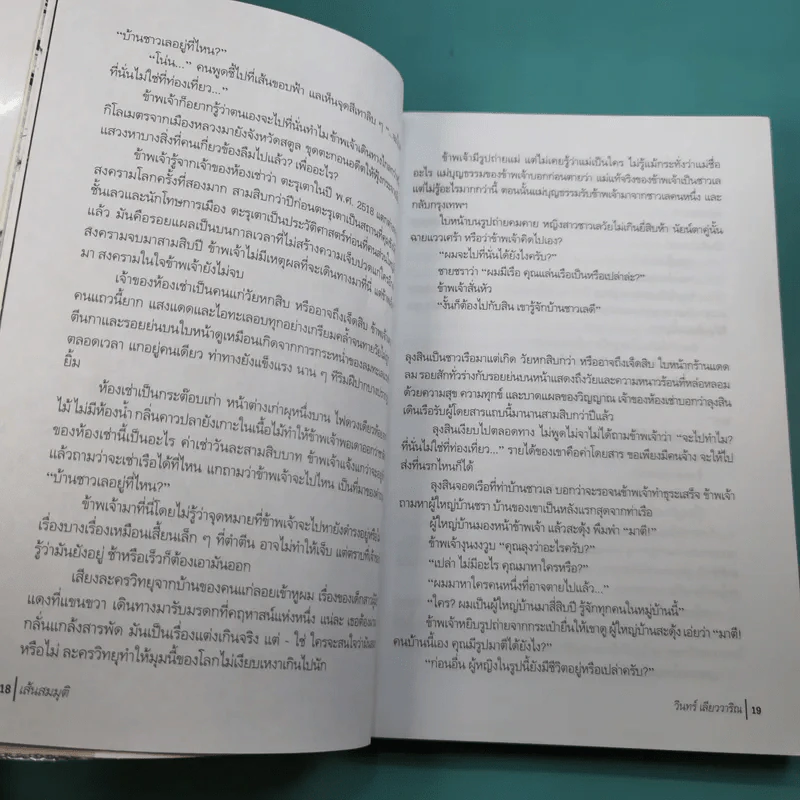 “บ้านชาวเลอยู่ที่ไหน?”
“โน่น...” คนพูดชี้ไปที่เส้นขอบฟ้า แลเห็นจุดสีเทาลิบ ๆ “...
ที่นั่นไม่ใช่ที่ท่องเที่ยว...”
ข้าพเจ้าก็อยากรู้ว่าตนเองจะไปที่นั่นทำไม ข้าพเจ้าเดินทาง
กิโลเมตรจากเมืองหลวงมายังจังหวัดสตูล ขุดตะกอนอดีตให้
แสวงหาบางสิ่งที่คนเกี่ยวข้องลืมไปแล้ว? เพื่ออะไร?
ข้าพเจ้ารู้จากเจ้าของห้องเช่าว่า ตะรุเตาในปี พ.ศ. 2518 แตกต่าง
สงครามโลกครั้งที่สองมาก สามสิบกว่าปีก่อนตะรุเตาเป็นสถานที่
ชั้นเลวและนักโทษการเมือง ตะรุเตาเป็นประวัติศาสตร์ท่อนที่คน
แล้ว มันคือรอยแผลเป็นบนกาลเวลาที่ไม่สร้างความเจ็บปวดแก่ใคร
สงครามจบมาสามสิบปี ข้าพเจ้าไม่มีเหตุผลที่จะเดินทางมาที่นี่ แต่
มา สงครามในใจข้าพเจ้ายังไม่จบ
เจ้าของห้องเช่าเป็นคนแก่วัยหกสิบ หรืออาจถึงเจ็ดสิบ
คนแถวนี้ยาก แสงแดดและไอทะเลอบทุกอย่างเกรียมคล้ำจนทายวัย
ตีนกาและรอยย่นบนใบหน้าดูเหมือนเกิดจากการกระหน่ำของลมทะเล
ตลอดเวลา แกอยู่คนเดียว ท่าทางยังแข็งแรง นาน ๆ ทีริมฝีปากบาง
ยิ้ม
ห้องเช่าเป็นกระต๊อบเก่า หน้าต่างเก่าผุหนึ่งบาน ไฟดวงเดียวห้อย
ไม้ ไม่มีห้องน้ำ กลิ่นคาวปลายังเกาะในเนื้อไม้ทำให้ข้าพเจ้าพอเดาออกว่า
ของห้องเช่านี้เป็นอะไร ค่าเช่าวันละสามสิบบาท ข้าพเจ้าแจ้งแก่ว่า
แล้วถามว่าจะเช่าเรือได้ที่ไหน แกถามว่าข้าพเจ้าจะไปไหน เป็นที่มาของ
“บ้านชาวเลอยู่ที่ไหน?”
ข้าพเจ้ามาที่นี่โดยไม่รู้ว่าจุดหมายที่ข้าพเจ้าจะไปหายังดำรงอยู่หรือไม่
เรื่องบางเรื่องเหมือนเสี้ยนเล็ก ๆ ที่ตำตีน อาจไม่ทำให้เจ็บ แต่ตราบที่
รู้ว่ามันยังอยู่ ช้าหรือเร็วก็ต้องเอามันออก
เสียงละครวิทยุจากบ้านของคนแก่ลอยเข้าหูผม เรื่องของเด็กสาว
แดงที่แขนขวา เดินทางมารับมรดกที่คฤหาสน์แห่งหนึ่ง แน่ละ เธอต้อง
กลั่นแกล้งสารพัด มันเป็นเรื่องแต่งเกินจริง แต่ - ใช่ ใครจะสนใจว่า
หรือไม่ ละครวิทยุทำให้มุมนี้ของโลกไม่เงียบเหงาเกินไปนัก
18 | เส้นสมมุติ
ข้าพเจ้ามีรูปถ่ายแม่ แต่ไม่เคยรู้ว่าแม่เป็นใคร ไม่รู้แม้กระทั่งว่าแม่ชื่อ
อะไร แม่บุญธรรมของข้าพเจ้าบอกก่อนตายว่า แม่แท้จริงของข้าพเจ้าเป็นชาวเล
แต่ไม่รู้อะไรมากกว่านี้ ตอนนั้นแม่บุญธรรมรับข้าพเจ้ามาจากชาวเลคนหนึ่ง และ
กลับกรุงเทพฯ
ใบหน้าบนรูปถ่ายคมคาย หญิงสาวชาวเลวัยไม่เกินยี่สิบห้า นัยน์ตาคู่นั้น
ฉายแววเศร้า หรือว่าข้าพเจ้าคิดไปเอง?
“ผมจะไปที่นั่นได้ยังไงครับ?”
ชายชราว่า “ผมมีเรือ คุณแล่นเรือเป็นหรือเปล่าล่ะ?”
ข้าพเจ้าสั่นหัว
“งั้นก็ต้องไปกับสิน เขารู้จักบ้านชาวเลดี”
ลุงสินเป็นชาวเรือมาแต่เกิด วัยหกสิบกว่า หรืออาจถึงเจ็ดสิบ ใบหน้ากร้านแดด
ลม รอยสักทั่วร่างกับรอยย่นบนหน้าแสดงถึงวัยและความหนาวร้อนที่หล่อหลอม
ด้วยความสุข ความทุกข์ และบาดแผลของวิญญาณ เจ้าของห้องเช่าบอกว่าลุงสิน
เดินเรือรับผู้โดยสารแถบนี้มานานสามสิบกว่าปีแล้ว
ลุงสินเงียบไปตลอดทาง ไม่พูดไม่จาไม่ได้ถามข้าพเจ้าว่า “จะไปทำไม?
ที่นั่นไม่ใช่ที่ท่องเที่ยว...” รายได้ของเขาคือค่าโดยสาร ขอเพียงมีคนจ้าง จะให้ไป
ส่งที่นรกไหนก็ได้
ลุงสินจอดเรือที่ท่าบ้านชาวเล บอกว่าจะรอจนข้าพเจ้าทำธุระเสร็จ ข้าพเจ้า
ถามหาผู้ใหญ่บ้านชรา บ้านของเขาเป็นหลังแรกสุดจากท่าเรือ
ผู้ใหญ่บ้านมองหน้าข้าพเจ้า แล้วสะดุ้ง พึมพำ “มาตี!”
ข้าพเจ้างุนงงวูบ “คุณลุงว่าอะไรครับ?”
“เปล่า ไม่มีอะไร คุณมาหาใครหรือ?”
“ผมมาหาใครคนหนึ่งที่อาจตายไปแล้ว...”
“ใคร? ผมเป็นผู้ใหญ่บ้านมาสี่สิบปี รู้จักทุกคนในหมู่บ้านนี้”
ข้าพเจ้าหยิบรูปถ่ายจากกระเป๋ายื่นให้เขาดู ผู้ใหญ่บ้านสะดุ้ง เอ่ยว่า “มาตี!
คนบ้านนี้เอง คุณมีรูปมาตีได้ยังไง?”
“ก่อนอื่น ผู้หญิงในรูปนี้ยังมีชีวิตอยู่หรือเปล่าครับ?”
วินทร์ เลียววาริณ | 19